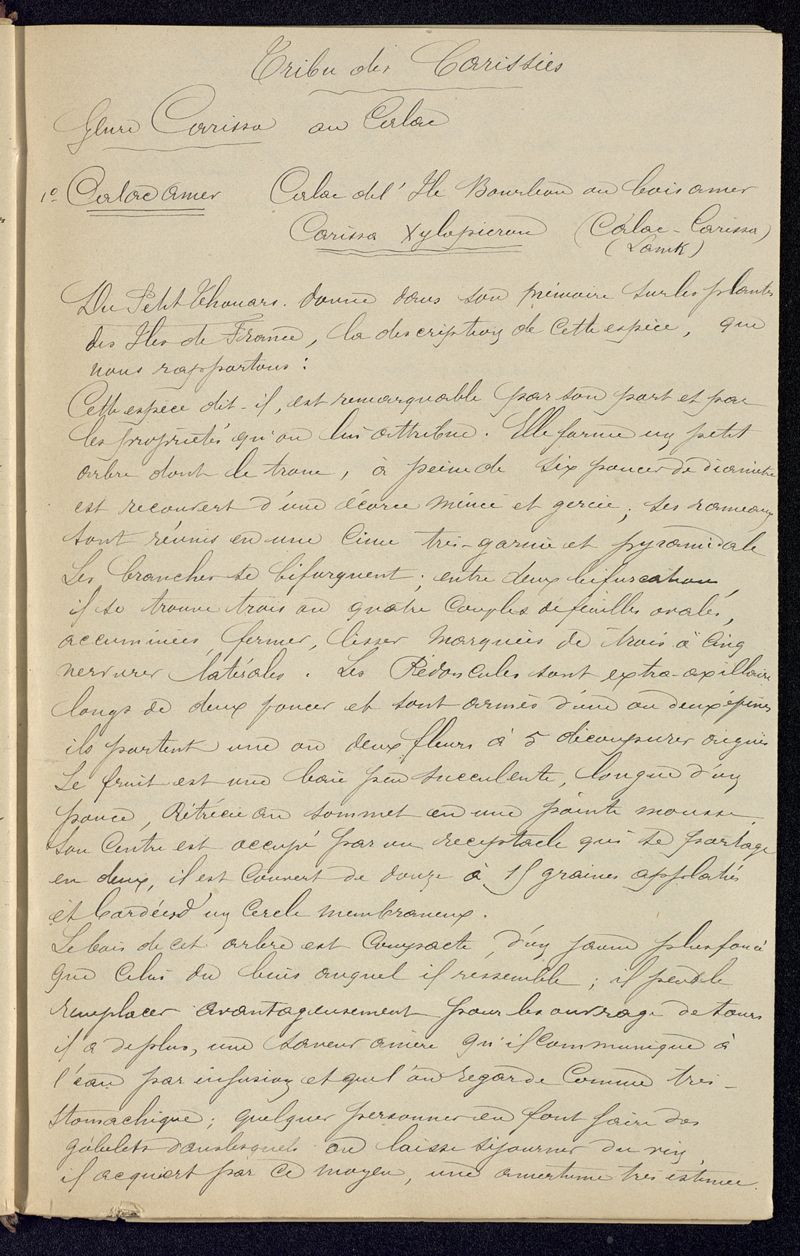 Tribu des Carissées
Genre Carissa ou Calac
1º Calac amer Calac de l'Ile Bourbon ou bois amer
Carissa Xylopicron (Calac-Carissa)
(Lamk)
Du Petit Thouars. donne dans son mémoire sur les plantes
des Iles de France, la description de cette espèce, que
nous rapportons:
Cette espèce dit-il, est remarquable par son port et par
les propriétés qu'on lui attribue. Elle forme un petit
arbre dont le tronc, à peine de six pouces de diamètre
est recouvert d'une écorce mince et gercée; ses rameaux
sont réunis en une cime très-garnie et pyramidale
Les branches se bifurquent; entre deux bifurcations
il se trouve trois ou quatre couples de feuilles ovales,
accuminées, fermes, lisses marquées de trois à cinq
nervures latérales. Les Pédoncules sont extra-axillaires
longs de deux pouces et sont armés d'une ou deux épines
ils portent une ou deux fleurs à 5 découpures aigues
Le fruit est une baie peu succulente, longue d'un
pouce, rétrécie au sommet en une pointe mousse
son centre est occupé par un receptacle qui se partage
en deux, il est couvert de douze à 15 graines applaties
et bordées d'un cercle membraneux.
Le bois de cet arbre est compacte, d'un jaune plus foncé
que celui du buis auquel il ressemble; il peut le
remplacer avantageusement pour les ouvrages de tours
il a de plus, une saveur amère qu'il communique à
l'eau par infusion et que l'on regarde comme très-
stomachique; quelques personnes en font faire des
gobelets dans lesquels on laisse séjourner du vin,
il acquiert par ce moyen, une amertume très estimée.